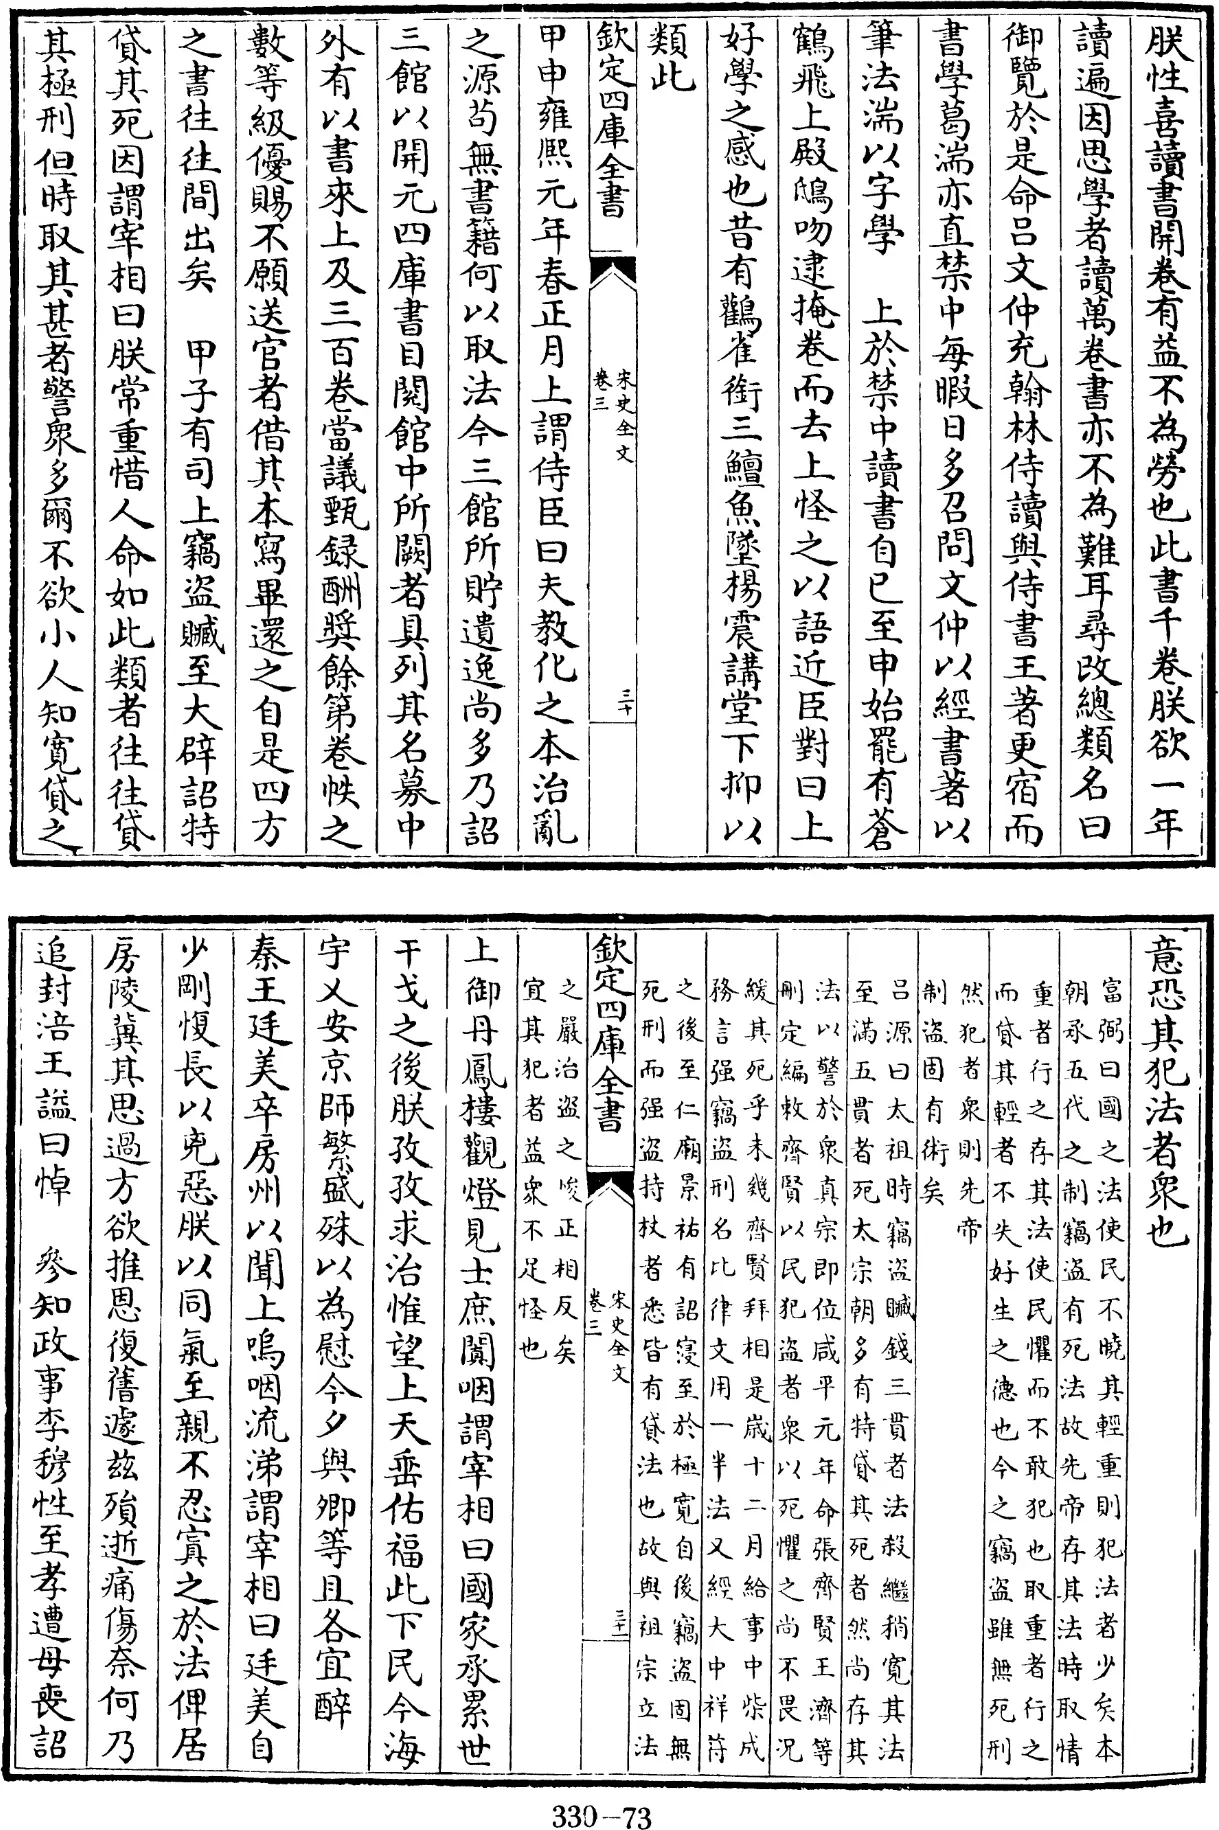 朕性喜讀書開卷有益不為勞也此書千卷朕欲一年
讀遍因思學者讀萬卷書亦不為難耳尋改總類名曰
御覽於是命呂文仲充翰林侍讀與侍書王著更宿而
書學葛湍亦直禁中每暇日多召問文仲以經書著以
筆法湍以字學　上於禁中讀書自巳至申始罷有蒼
鶴飛上殿鴟吻逮掩卷而去上怪之以語近臣對曰上
好學之感也昔有鸛雀銜三鱣魚墜楊震講堂下抑以
類此
欽定四庫全書
宋史全文
卷三
三十
甲申雍熙元年春正月上謂侍臣曰夫教化之本治亂
之源苟無書籍何以取法今三館所貯遺逸尚多乃詔
三館以開元四庫書目閱館中所闕者具列其名募中
外有以書來上及三百卷當議甄録酬奬餘第卷帙之
數等級優賜不願送官者借其本寫畢還之自是四方
之書往往間出矣　甲子有司上竊盜贓至大辟詔特
貸其死因謂宰相曰朕常重惜人命如此類者往往貸
其極刑但時取其甚者警衆多爾不欲小人知寛貸之
意恐其犯法者衆也
富弼曰國之法使民不曉其輕重則犯法者少矣本
朝承五代之制竊盜有死法故先帝存其法時取情
重者行之存其法使民懼而不敢犯也取重者行之
而貸其輕者不失好生之德也今之竊盜雖無死刑
然犯者衆則先帝
制盜固有術矣
呂源曰太祖時竊盜贓錢三貫者法殺繼稍寛其法
至滿五貫者死太宗朝多有特貸其死者然尚存其
法以警於衆真宗即位咸平元年命張齊賢王濟等
刪定編敕齊賢以民犯盜者衆以死懼之尚不畏况
緩其死乎未幾齊賢拜相是歳十二月給事中柴成
務言强竊盜刑名比律文用一半法又經大中祥符
之後至仁廟景祐有詔寖至於極寛自後竊盜固無
死刑而强盜持杖者悉皆有貸法也故與祖宗立法
欽定四庫全書
宋史全文
卷三
三十一
之嚴治盜之峻正相反矣
宜其犯者益衆不足怪也
上御丹鳳樓觀燈見士庶闐咽謂宰相曰國家承累世
干戈之後朕孜孜求治惟望上天垂佑福此下民今海
宇乂安京師繁盛殊以為慰今夕與卿等且各宜醉
秦王廷美卒房州以聞上嗚咽流涕謂宰相曰廷美自
少剛愎長以兇惡朕以同氣至親不忍寘之於法俾居
房陵冀其思過方欲推恩復舊遽兹殞逝痛傷奈何乃
追封涪王謚曰悼　參知政事李穆性至孝遭母喪詔
330-73